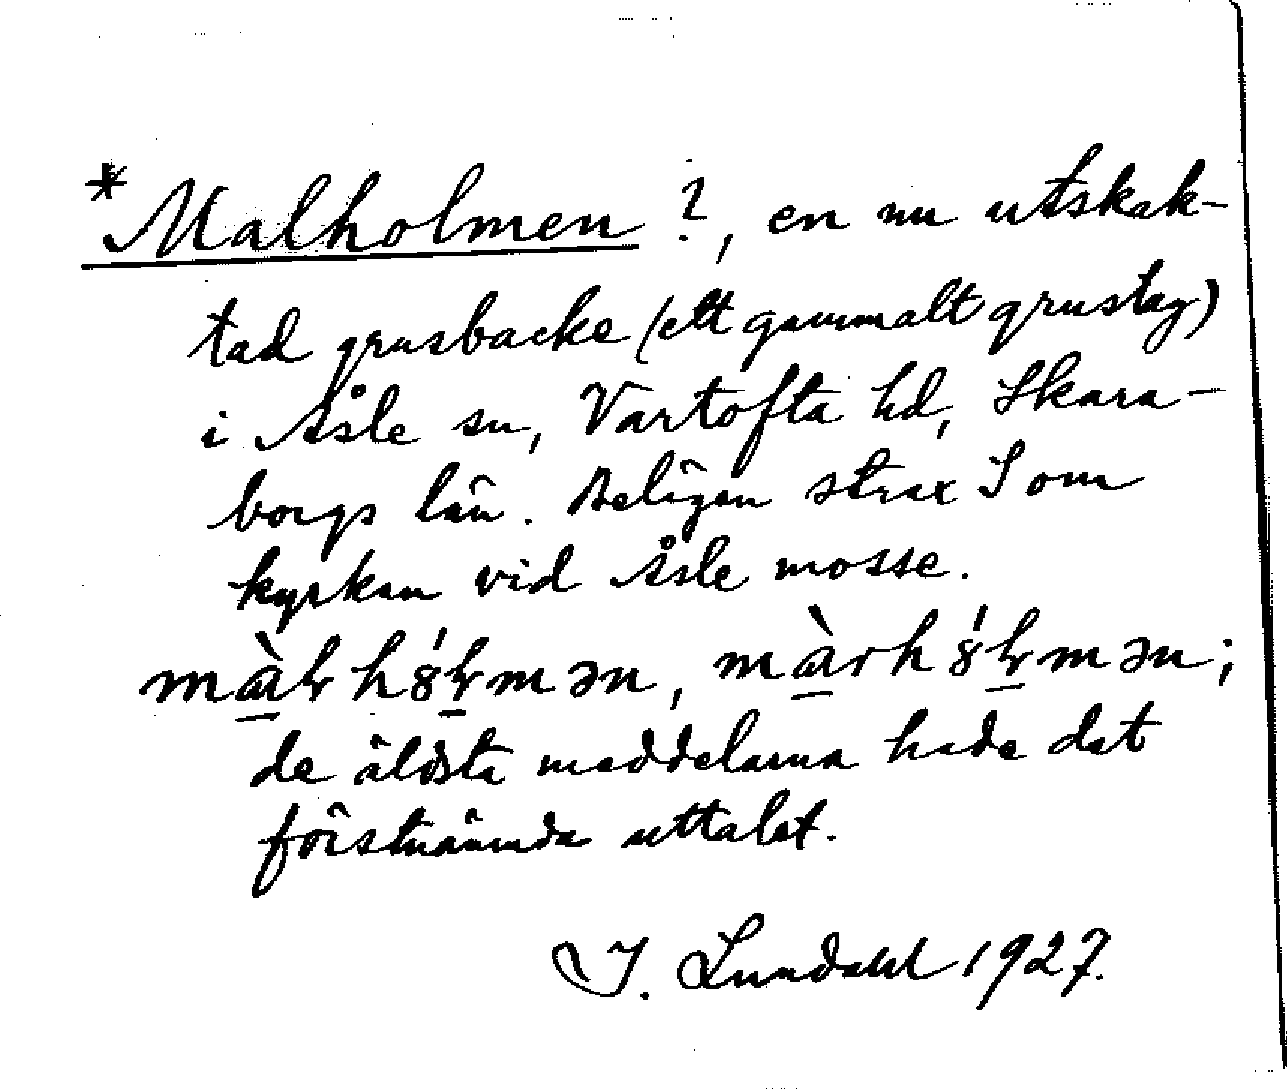 *Malholmen ?, en nu utskak-
tad grusbacke (ett gammalt grustag)
i Åsle sn, Vartofta hd, Skara-
borgs län. Belägen strax S om
kyrkan vid Åsle mosse.
de äldsta meddelarna hade det
förstnämnda uttalet.
I. Lundahl 1927.